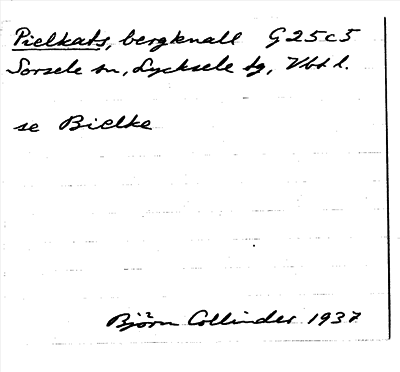 Pielkats, bergknall G25c5
Sorsele sn, Lycksele tg, Vbt l.
se Bielke
Björn Collinder 1937